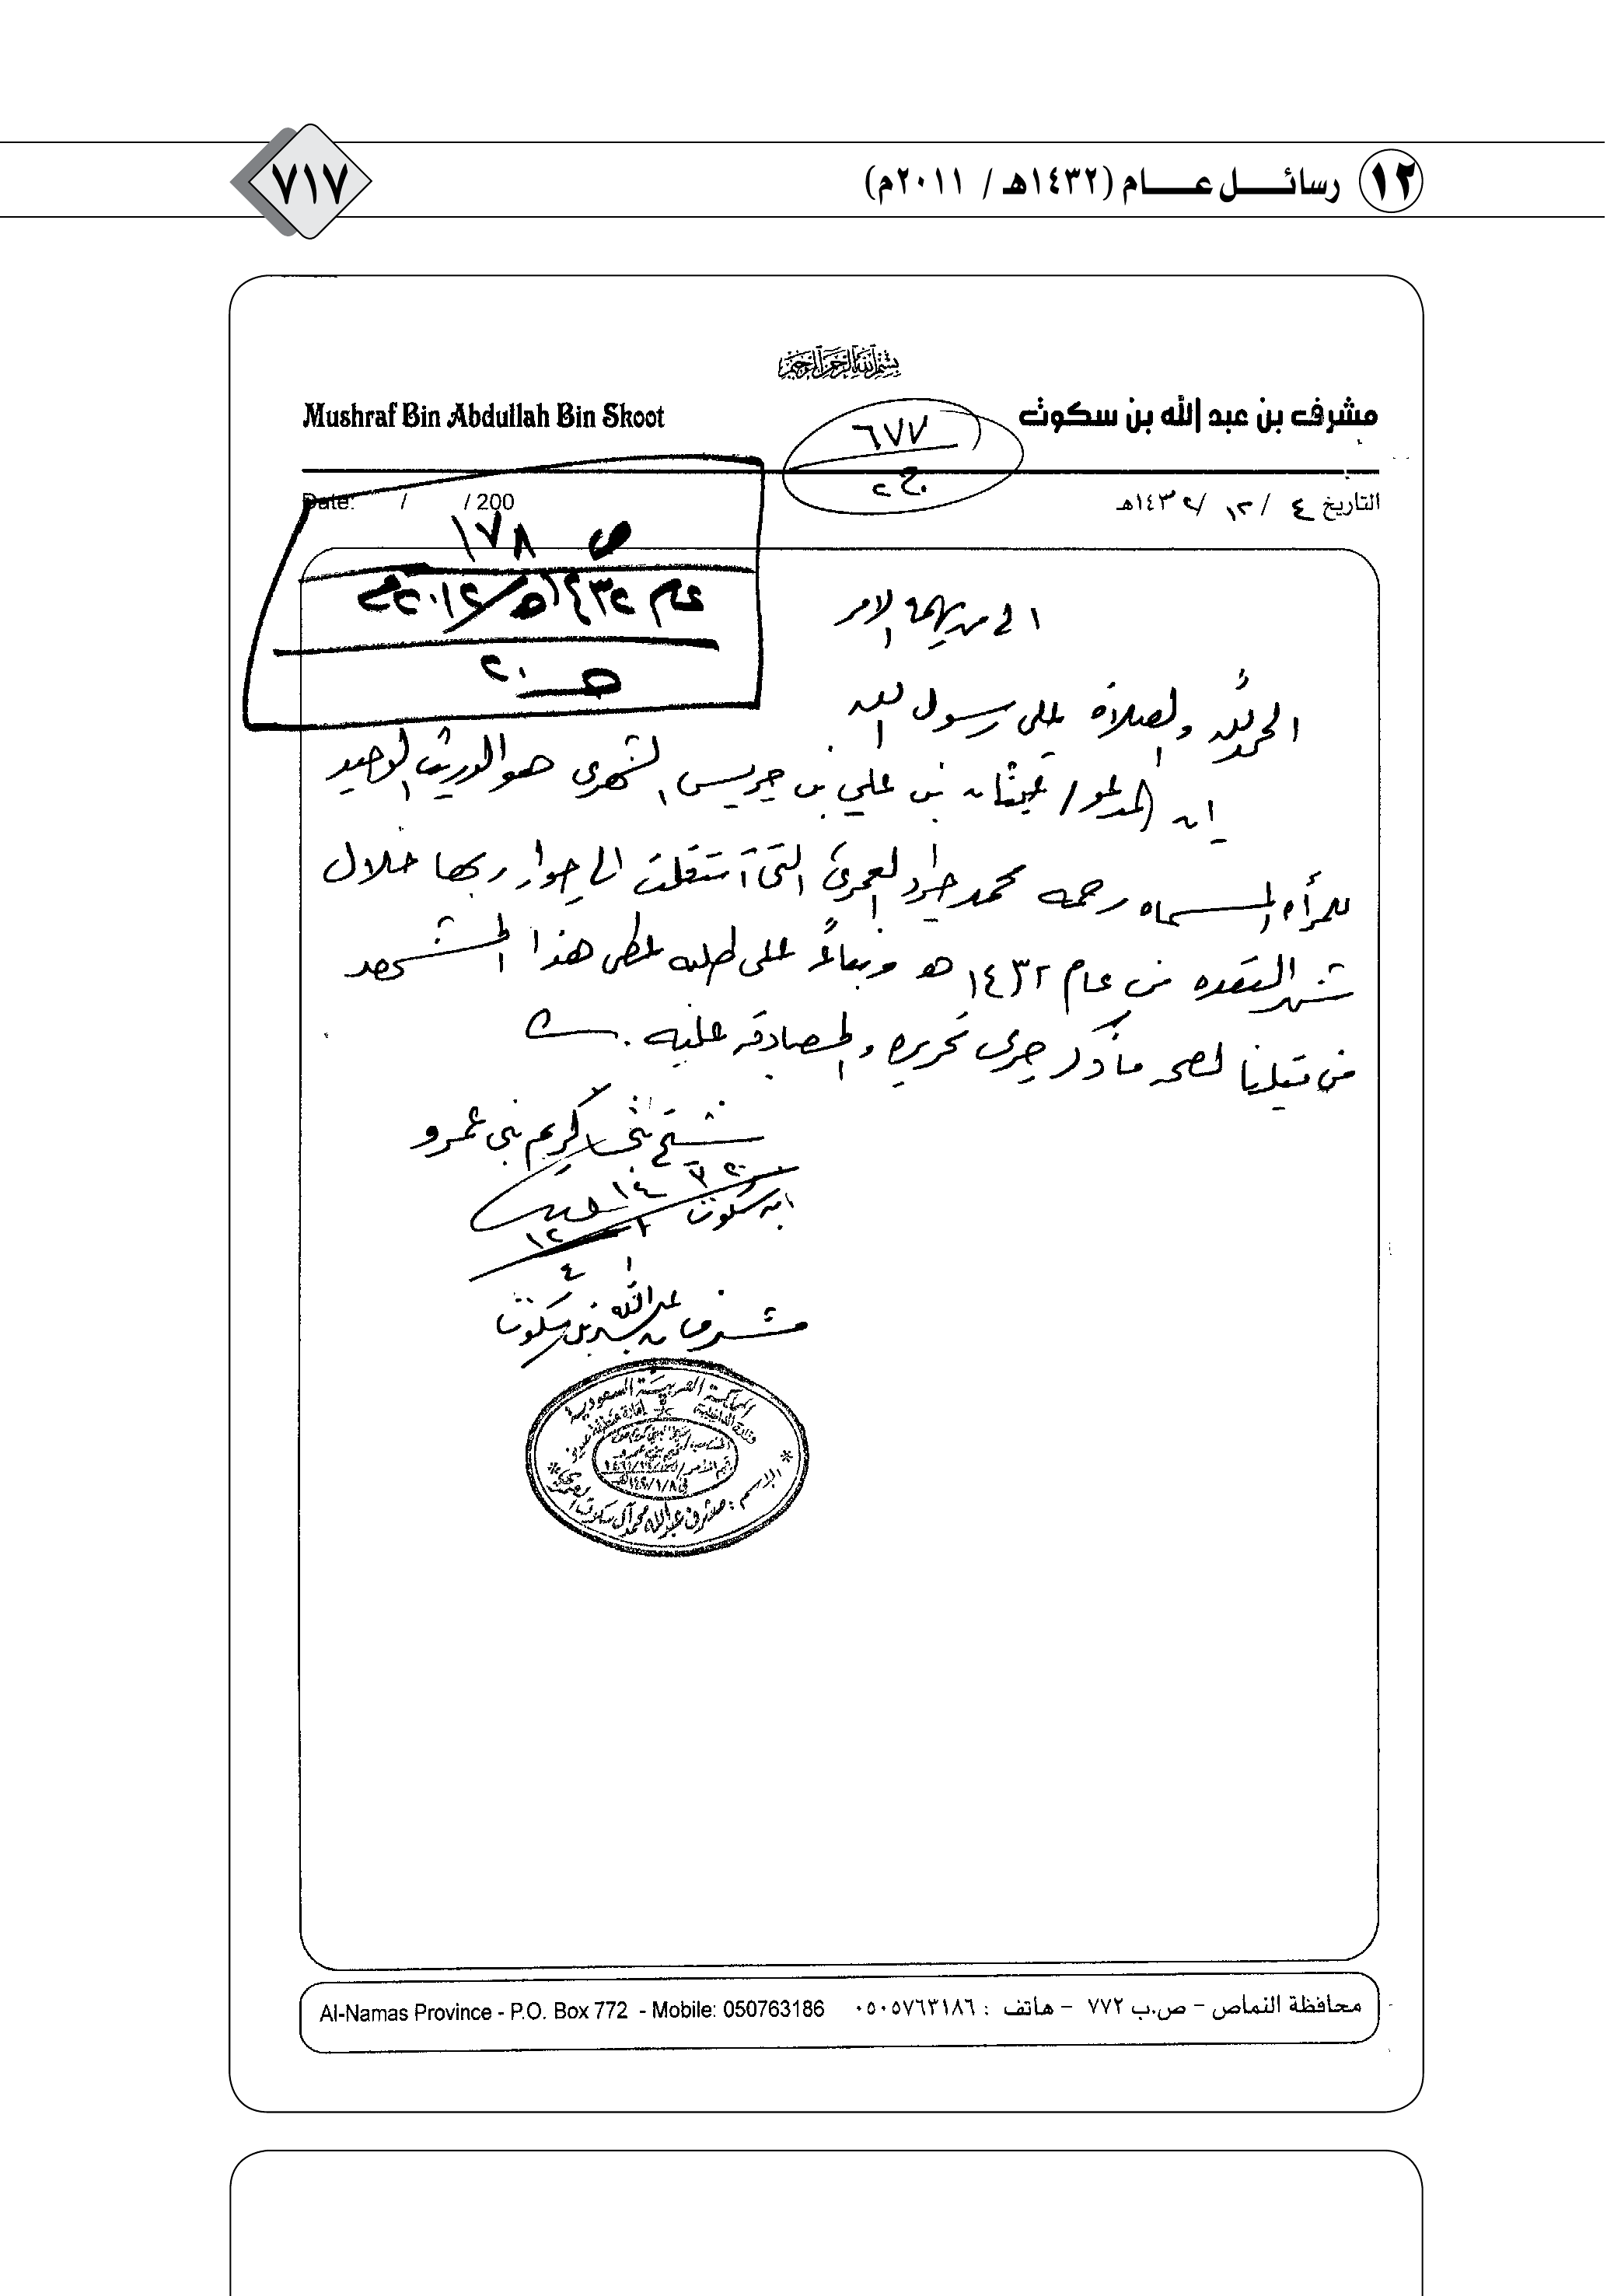 ١٢ رسائل عام (١٤٣٢هـ / ٢٠١١م)
٧١٧
بسم الله الرحمن الرحيم
مشرف بن عبد الله بن سكوت
Mushraf Bin Abdullah Bin Skoot
٦٧٧
ج ٢
التاريخ ٤ / ١٢ / ١٤٣٢هـ
Date: / / 200
ص ١٧٨
عام ١٤٣٢هـ/٢٠١٢م
الى من يهمه الامر
الحمد لله والصلاة على رسول الله
ان المدعو / غيثان بن علي بن جريس الشهري هو الوريث الوحيد
للمرأه المسماه رحمه محمد جراد العمري التي انتقلت الى جوار ربها خلال
شهر القعده من عام ١٤٣٢ هـ وبناءً على طلبه يعطى هذا المشهد
من قبلنا لصحه ماذكر جرى تحريره والمصادقه عليه .
شيخ كريم بني عمرو
ابن سكوت
١٤٣٢
١٢
٤
مشرف بن عبدالله بن سكوت
المملكة العربية السعودية
وزارة الداخلية إمارة منطقة عسير
الاسم : مشرف عبدالله محمد آل سكوت العمري
محافظة النماص - ص.ب ٧٧٢ - هاتف : ٠٥٠٥٧٦٣١٨٦
Al-Namas Province - P.O. Box 772 - Mobile: 050763186